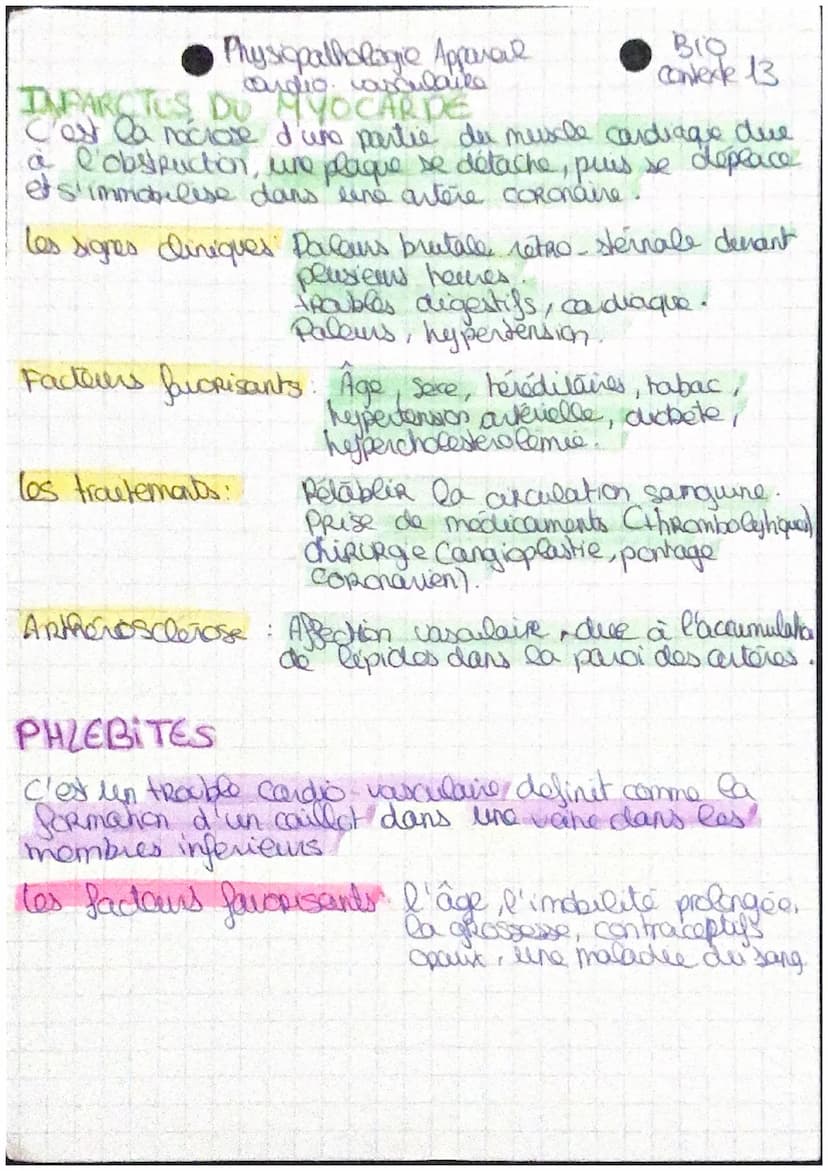 Physiopathologie Appareil
cardio. vasculaire
BIO
contexte 13
INFARCTUS DU MYOCARDE
C'est la nécrose d'une partie du muscle cardiaque due
à l'obstruction, une plaque se détache, puis se déplace
et s'immobilise dans une artère coronaire.
Les signes cliniques Douleurs brutale, rétro-sternale durant
plusieurs heures.
troubles digestifs, cardiaque.
Paleurs, hypertension.
Facteurs favorisants: Âge, sexe, héréditaires, tabac,
hypertension artérielle, diabète,
hypercholestérolémie.
Les traitements: Rétablir la circulation sanguine.
Prise de médicaments (thrombolytique)
chirurgie (angioplastie, pontage
coronarien).
Arthérosclérose : Affection vasculaire, due à l'accumulatio
de lépides dans la paroi des artères.
PHLEBITES
C'est un trouble cardio-vasculaire, definit comme la
formation d'un caillot dans une veine dans les
membres inférieurs
Les facteurs favorisants l'âge, l'imobilité prolongée,
la grossesse, contraceptifs
oraux, une maladie du sang